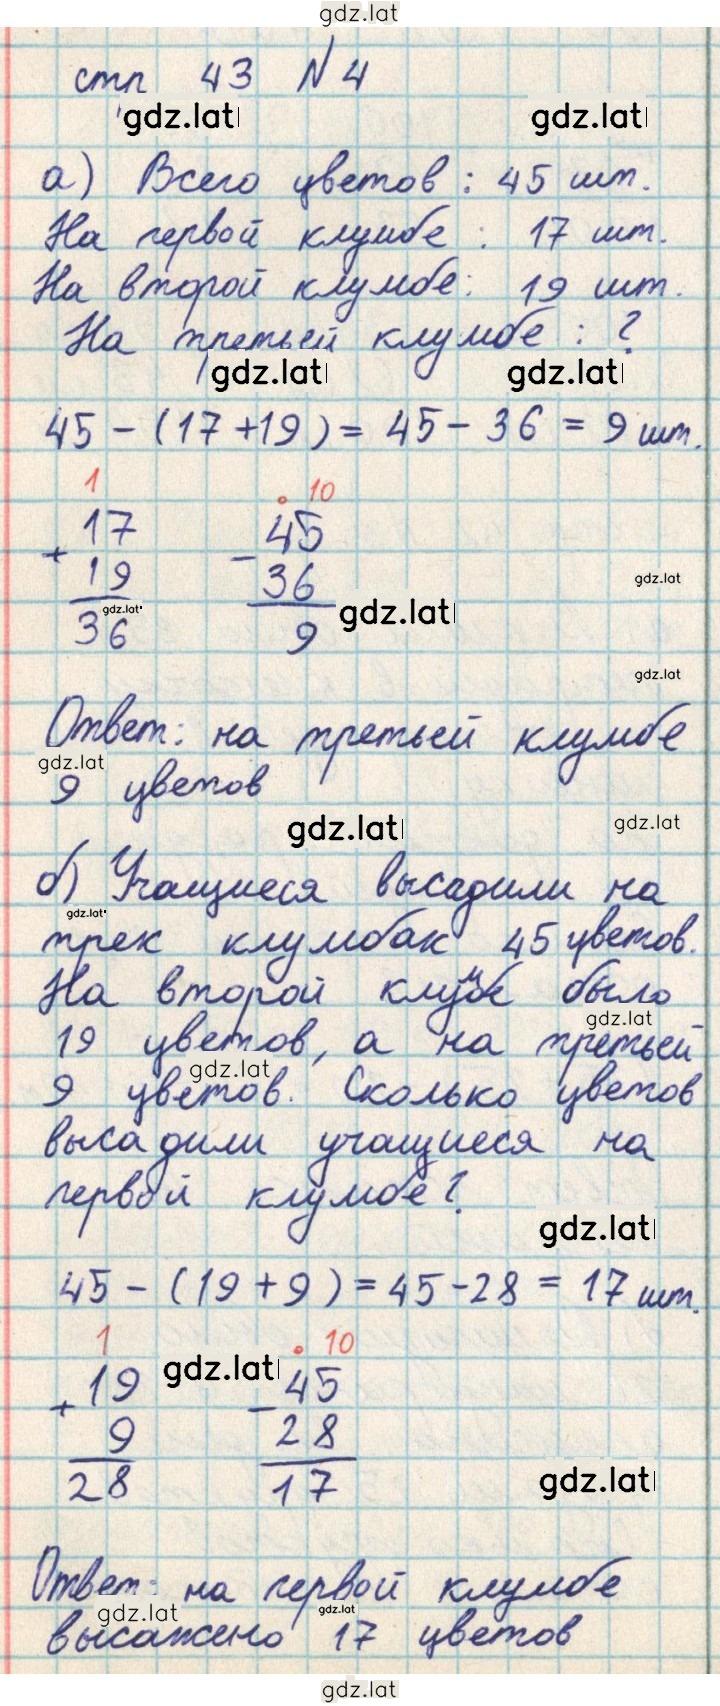 gdz.lat
стр 43 №4
gdz.lat gdz.lat
а) Всего цветов: 45 шт.
На первой клумбе: 17 шт.
На второй клумбе: 19 шт.
На третьей клумбе: ?
gdz.lat gdz.lat
45 - (17 + 19) = 45 - 36 = 9 шт.
1 . 10
17 45
+ -
19 36 gdz.lat
gdz.lat gdz.lat
36 9
gdz.lat
Ответ: на третьей клумбе
gdz.lat
9 цветов
gdz.lat gdz.lat
б) Учащиеся высадили на
gdz.lat
трех клумбах 45 цветов.
На второй клумбе было
gdz.lat
19 цветов, а на третьей
gdz.lat
9 цветов. Сколько цветов
высадили учащиеся на
первой клумбе?
gdz.lat
45 - (19 + 9) = 45 - 28 = 17 шт.
1 . 10
gdz.lat
19 45
+ -
9 28
28 17
gdz.lat
Ответ: на первой клумбе
gdz.lat gdz.lat
высажено 17 цветов
gdz.lat